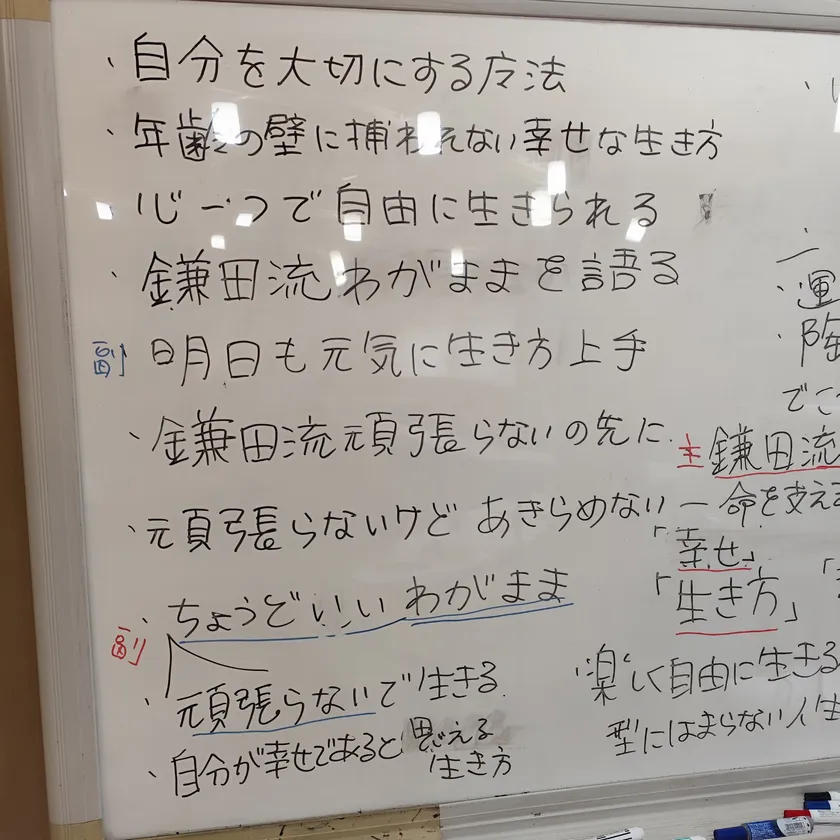 ・自分を大切にする方法
・年齢の壁に捕われない幸せな生き方
・心一つで自由に生きられる
・鎌田流わがままを語る
副 明日も元気に生き方上手
・鎌田流頑張らないの先に
・頑張らないけど あきらめない
・ちょうどいい わがまま
副
・頑張らないで生きる
・自分が幸せであると思える
生き方
運
陶
でこ
主 鎌田流
一命を支え
「幸せ」
「生き方」「
楽しく自由に生きる
型にはまらない人生